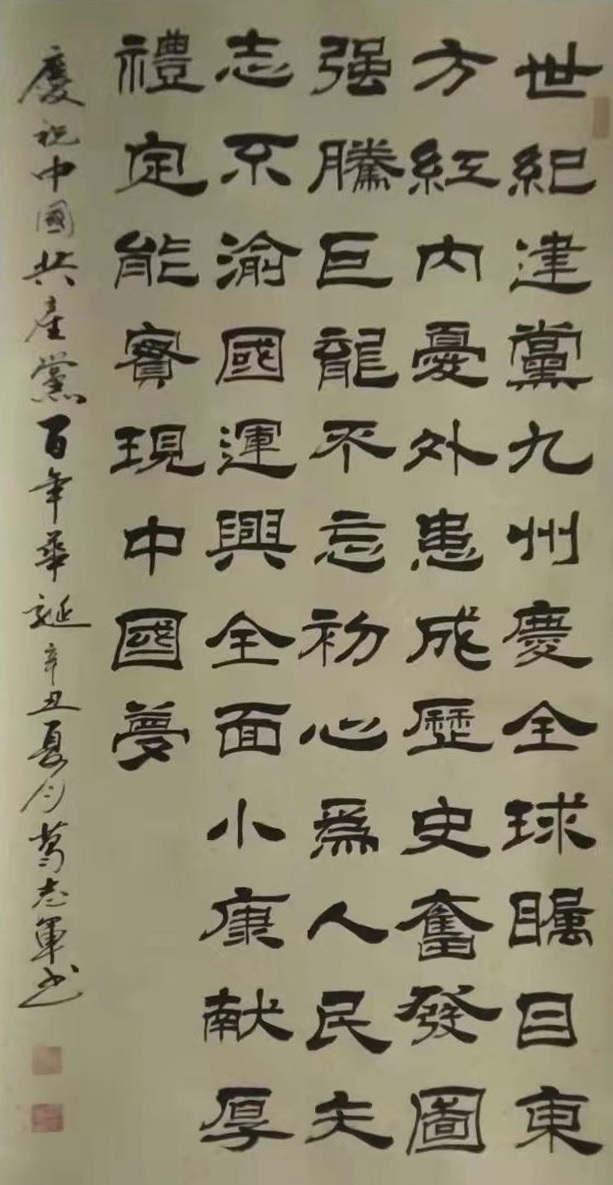 世紀建黨九州慶全球矚目東
方紅內憂外患成歷史奮發圖
强騰巨龍不忘初心為人民矢
志不渝國運興全面小康献厚
禮定能實現中國夢
慶祝中國共產黨百年華誕辛丑夏月葛志軍書